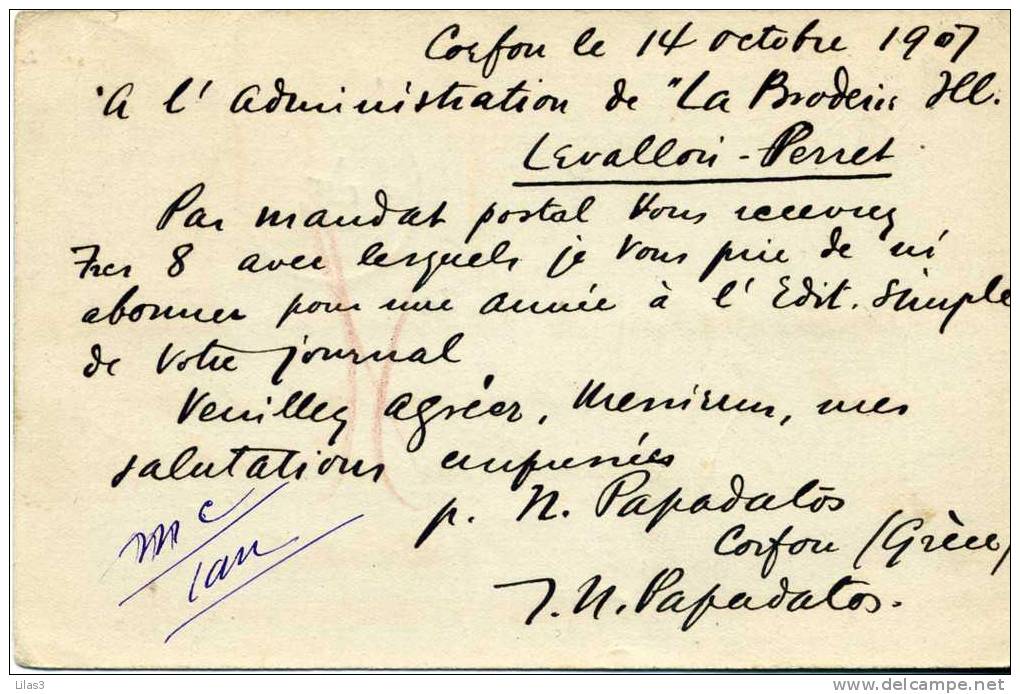 Corfou le 14 octobre 1907
A l'Administration de "La Broderie Ill.
Levallois-Perret
Par mandat postal vous recevrez
Frcs 8 avec lesquels je vous prie de m'
abonner pour une année à l'Edit. Simple
de votre journal
Veuillez agréer, Messieurs, mes
salutations empressées
p. N. Papadatos
Corfou (Grèce)
J. N. Papadatos.
Lilas3
www.delcampe.net